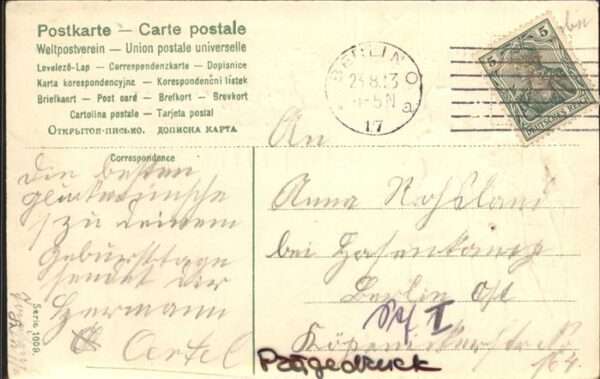 Postkarte — Carte postale
Weltpostverein — Union postale universelle
Levelező-Lap — Correspondenzkarte — Dopisnice
Karta korespondencyjna — Korespondenční lístek
Briefkaart — Post card — Brefkort — Brevkort
Cartolina postale — Tarjeta postal
Открытое письмо. дописна карта
Correspondence
BERLIN O
23.8.13
4-5N
a
17
5
5
DEUTSCHES REICH
Die besten
Glückwünsche
zu deinem
Geburtstage
sendet dir
Hermann
Oertel
Serie 1009.
An
Anna
bei Hasenkamp
Berlin Ost
Köpenickerstraße
164.
Prägedruck